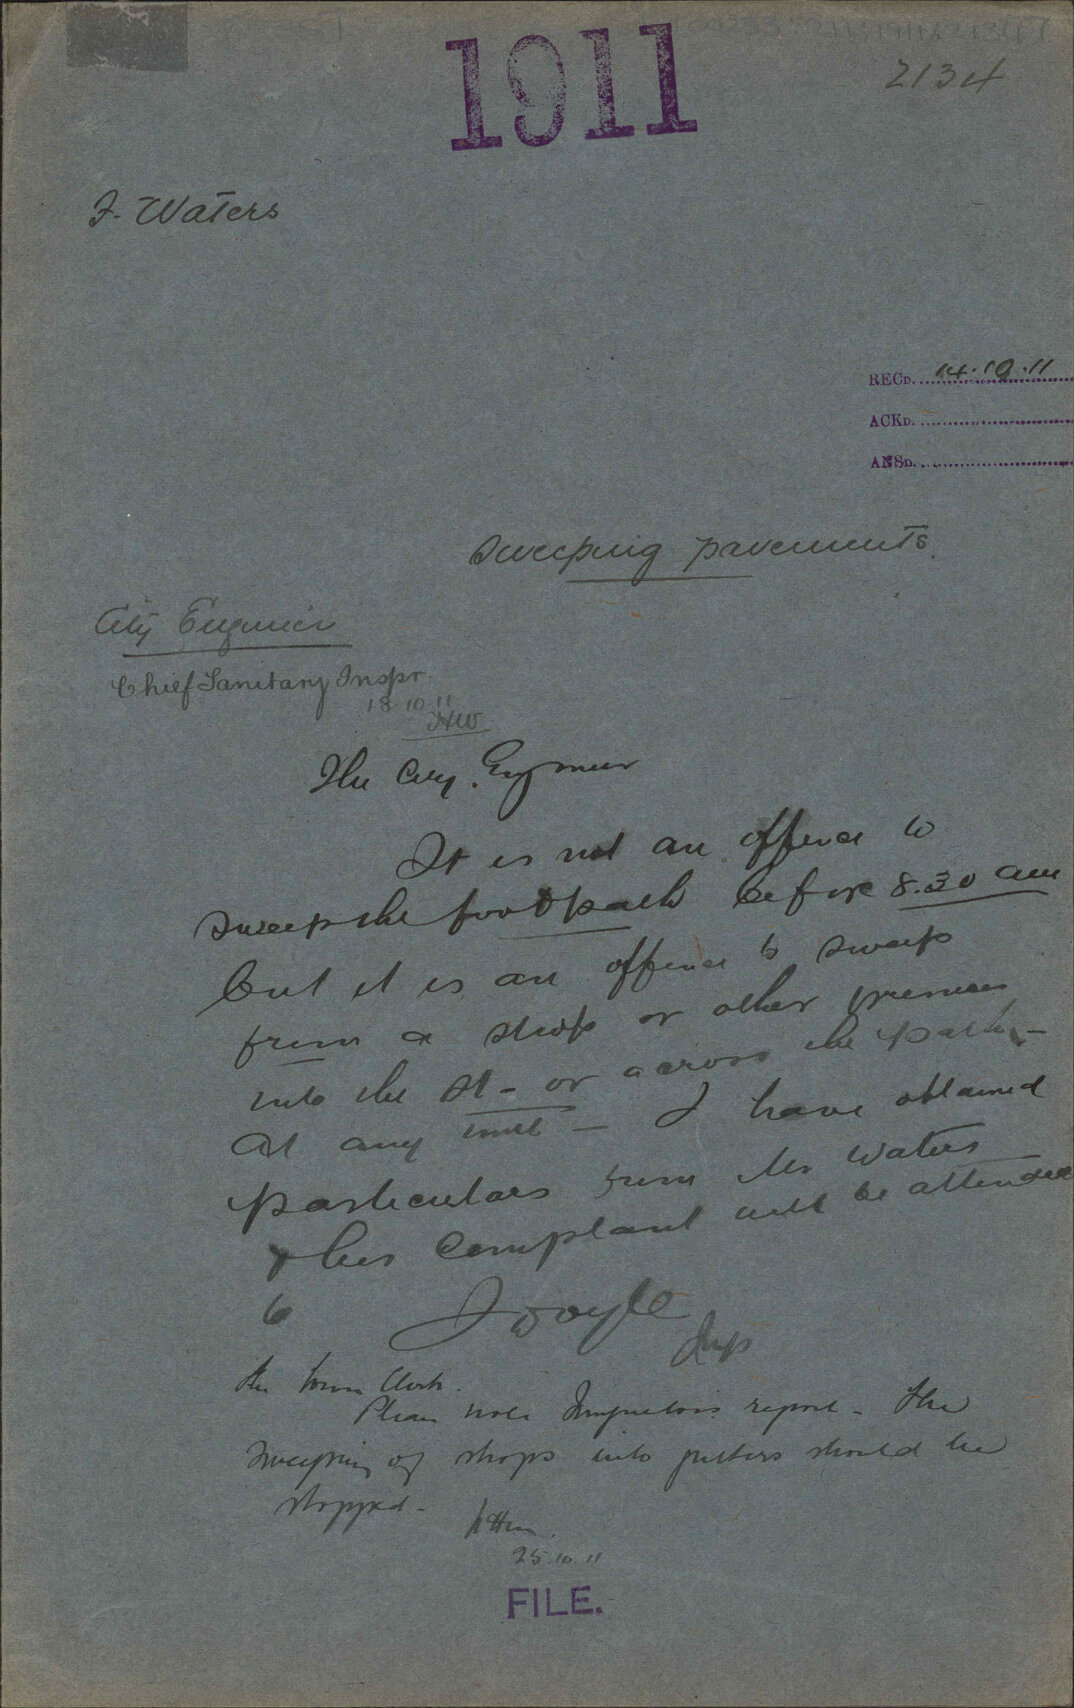 1911
2134
F. Waters
RECD. 14.10.11
ACKD.
ANSD.
Sweeping pavements.
City Engineer
Chief Sanitary Inspr.
18 10 11
HW
The City. Engineer
It is not an offence to
sweep the footpath before 8.30 am
but it is an offence to sweep
from a shop or other premises
into the St - or across the path -
at any time - I have obtained
particulars from Mr Waters
& his complaint will be attended
to J Doyle
Insp
The Town Clerk.
Please note Inspectors report - The
sweeping of shops into gutters should be
stopped -
25.10.11
FILE.